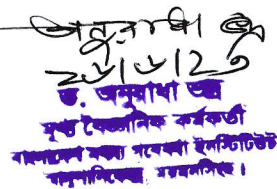 অনুরাধা ভদ্র
২৬/৬/২৩
ড. অনুরাধা ভদ্র
মুখ্য বৈজ্ঞানিক কর্মকর্তা
বাংলাদেশ মৎস্য গবেষণা ইনস্টিটিউট
ময়মনসিংহ।